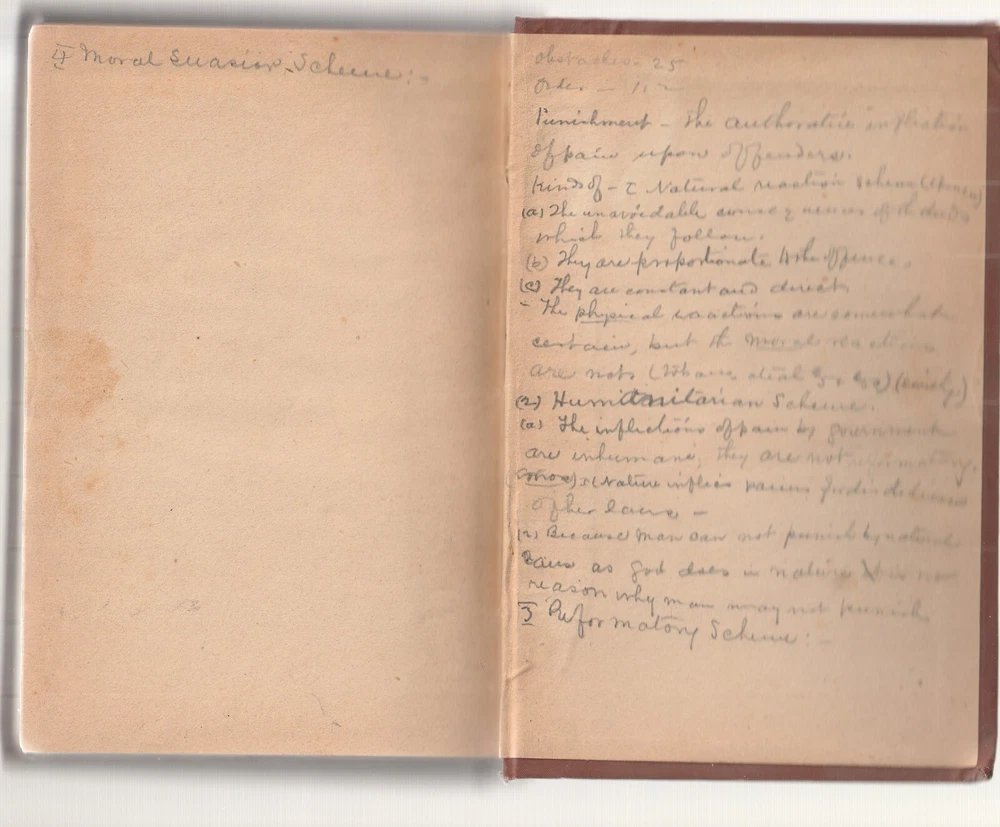 4 Moral Suasion Scheme:-
Obstacles - 25
Order - 112
Punishment - The authorative infliction
of pain upon offenders.
Kinds of - Natural reaction scheme (Spencer)
(a) The unavoidable consequences of the deeds
which they follow.
(b) They are proportionate to the offence.
(c) They are constant and direct.
- The physical reactions are somewhat
certain, but the moral reactions
are not. (Tobacco, steal
(2) Humanitarian Scheme.
(a) The inflictions of pain by government
are inhumane; they are not reformatory.
(Nature inflicts pains
of her laws -
(2) Because man can not punish by natural
as God does in nature is no
reason why man may not punish
3 Reformatory Scheme:-